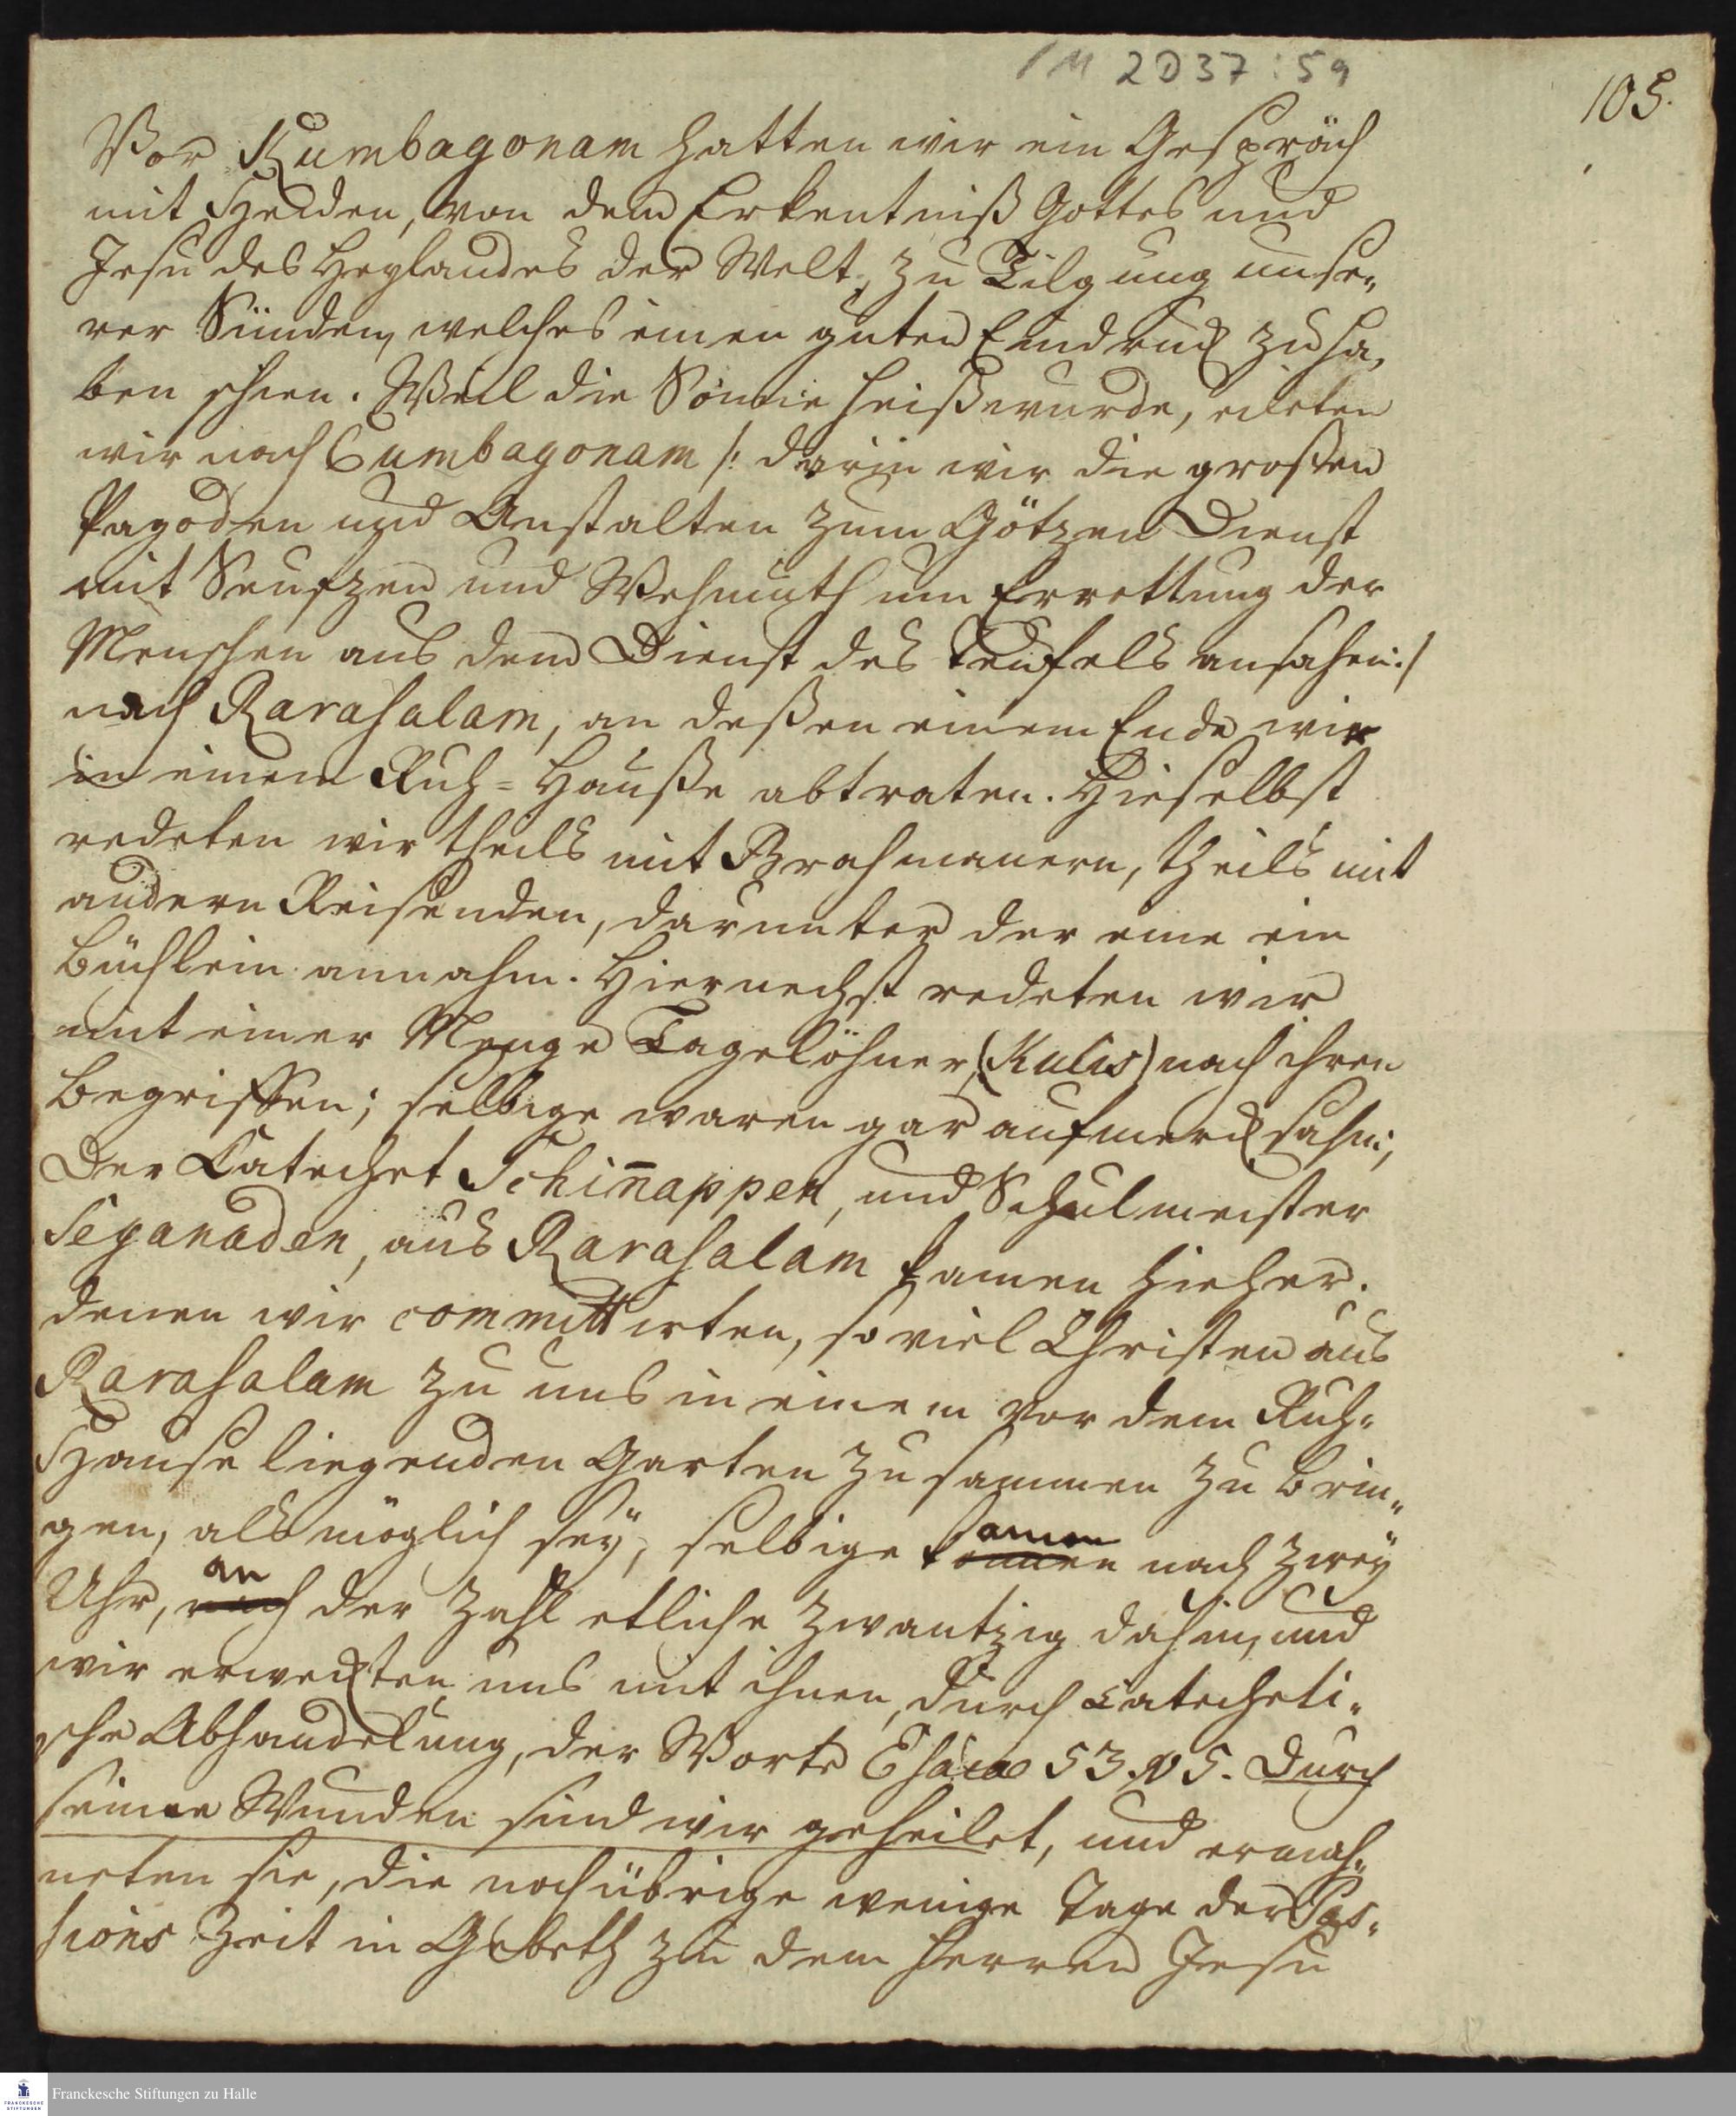 1 M 2 D 37 : 59
105.
Vor Kumbagonam hatten wir ein Gespräch
mit Heiden, von dem Erkentniß Gottes und
Jesu des Heylandes der Welt, zu Tilgung unse„
rer Sünden, welches einen guten Eindruck zu ha„
ben schien. Weil die Sonne heiß wurde, eileten
wir nach Cumbagonam /: darin wir die großen
Pagoden und Anstalten zum Götzen Dienst
mit Seufzen und Wehmuth um Errettung der
Menschen aus dem Dienst des Teufels ansahen :/
nach Rarasalam, an deßen einem Ende wir
in einem Ruh=Hauße abtraten. Hieselbst
redeten wir theils mit Brahmanern, theils mit
andern Reisenden, darunter der eine ein
Büchlein annahm. Hiernechst redeten wir
mit einer Menge Tagelöhner, (Kulis) nach ihren
Begriffen; selbige waren gar aufmercksahm;
Der Catechet Schin̄appen, und Schulmeister
Seganaden, aus Rarasalam kamen hieher.
denen wir committirten, so viel Christen aus
Rarasalam zu uns in einem vor dem Ruh=
Hause liegenden Garten zusammen zu brin„
gen, als möglich seÿ, selbige kamen nach zweÿ
Uhr, an der Zahl etliche zwantzig dahin, und
wir erweckten uns mit ihnen, durch catecheti„
sche Abhandelung, der Worte Esaiae 53. v 5. Durch
seine Wunden sind wir geheilet, und ermah„
neten sie, die noch übrige wenige Tage der Pas„
sions Zeit in Gebeth zu dem Herren Jesu
Franckesche Stiftungen zu Halle
FRANCKESCHE
STIFTUNGEN